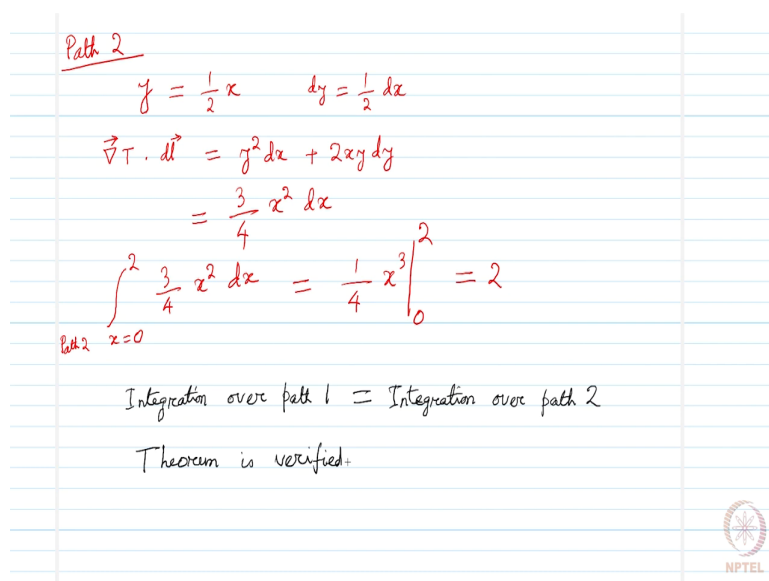 Path 2
y = 1/2 x    dy = 1/2 dx
∇⃗T . dl⃗ = y² dx + 2xy dy
= 3/4 x² dx
∫_{Path 2 x=0}^{2} 3/4 x² dx = 1/4 x³ |_0^2 = 2
Integration over path 1 = Integration over path 2
Theorem is verified.
NPTEL